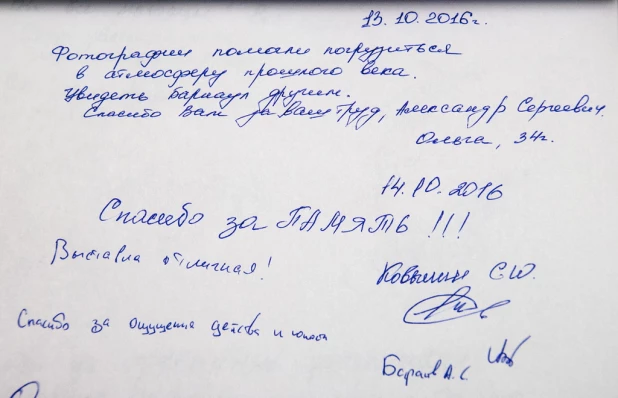 13.10.2016г.
Фотографии помогли погрузиться
в атмосферу прошлого века.
Увидеть Барнаул другим.
Спасибо Вам за ваш труд, Александр Сергеевич.
Ольга, 34г.
14.10.2016
Спасибо за ПАМЯТЬ !!!
Выставка отличная!
С.Ю.
Спасибо за ощущения детства и юности
А.С.